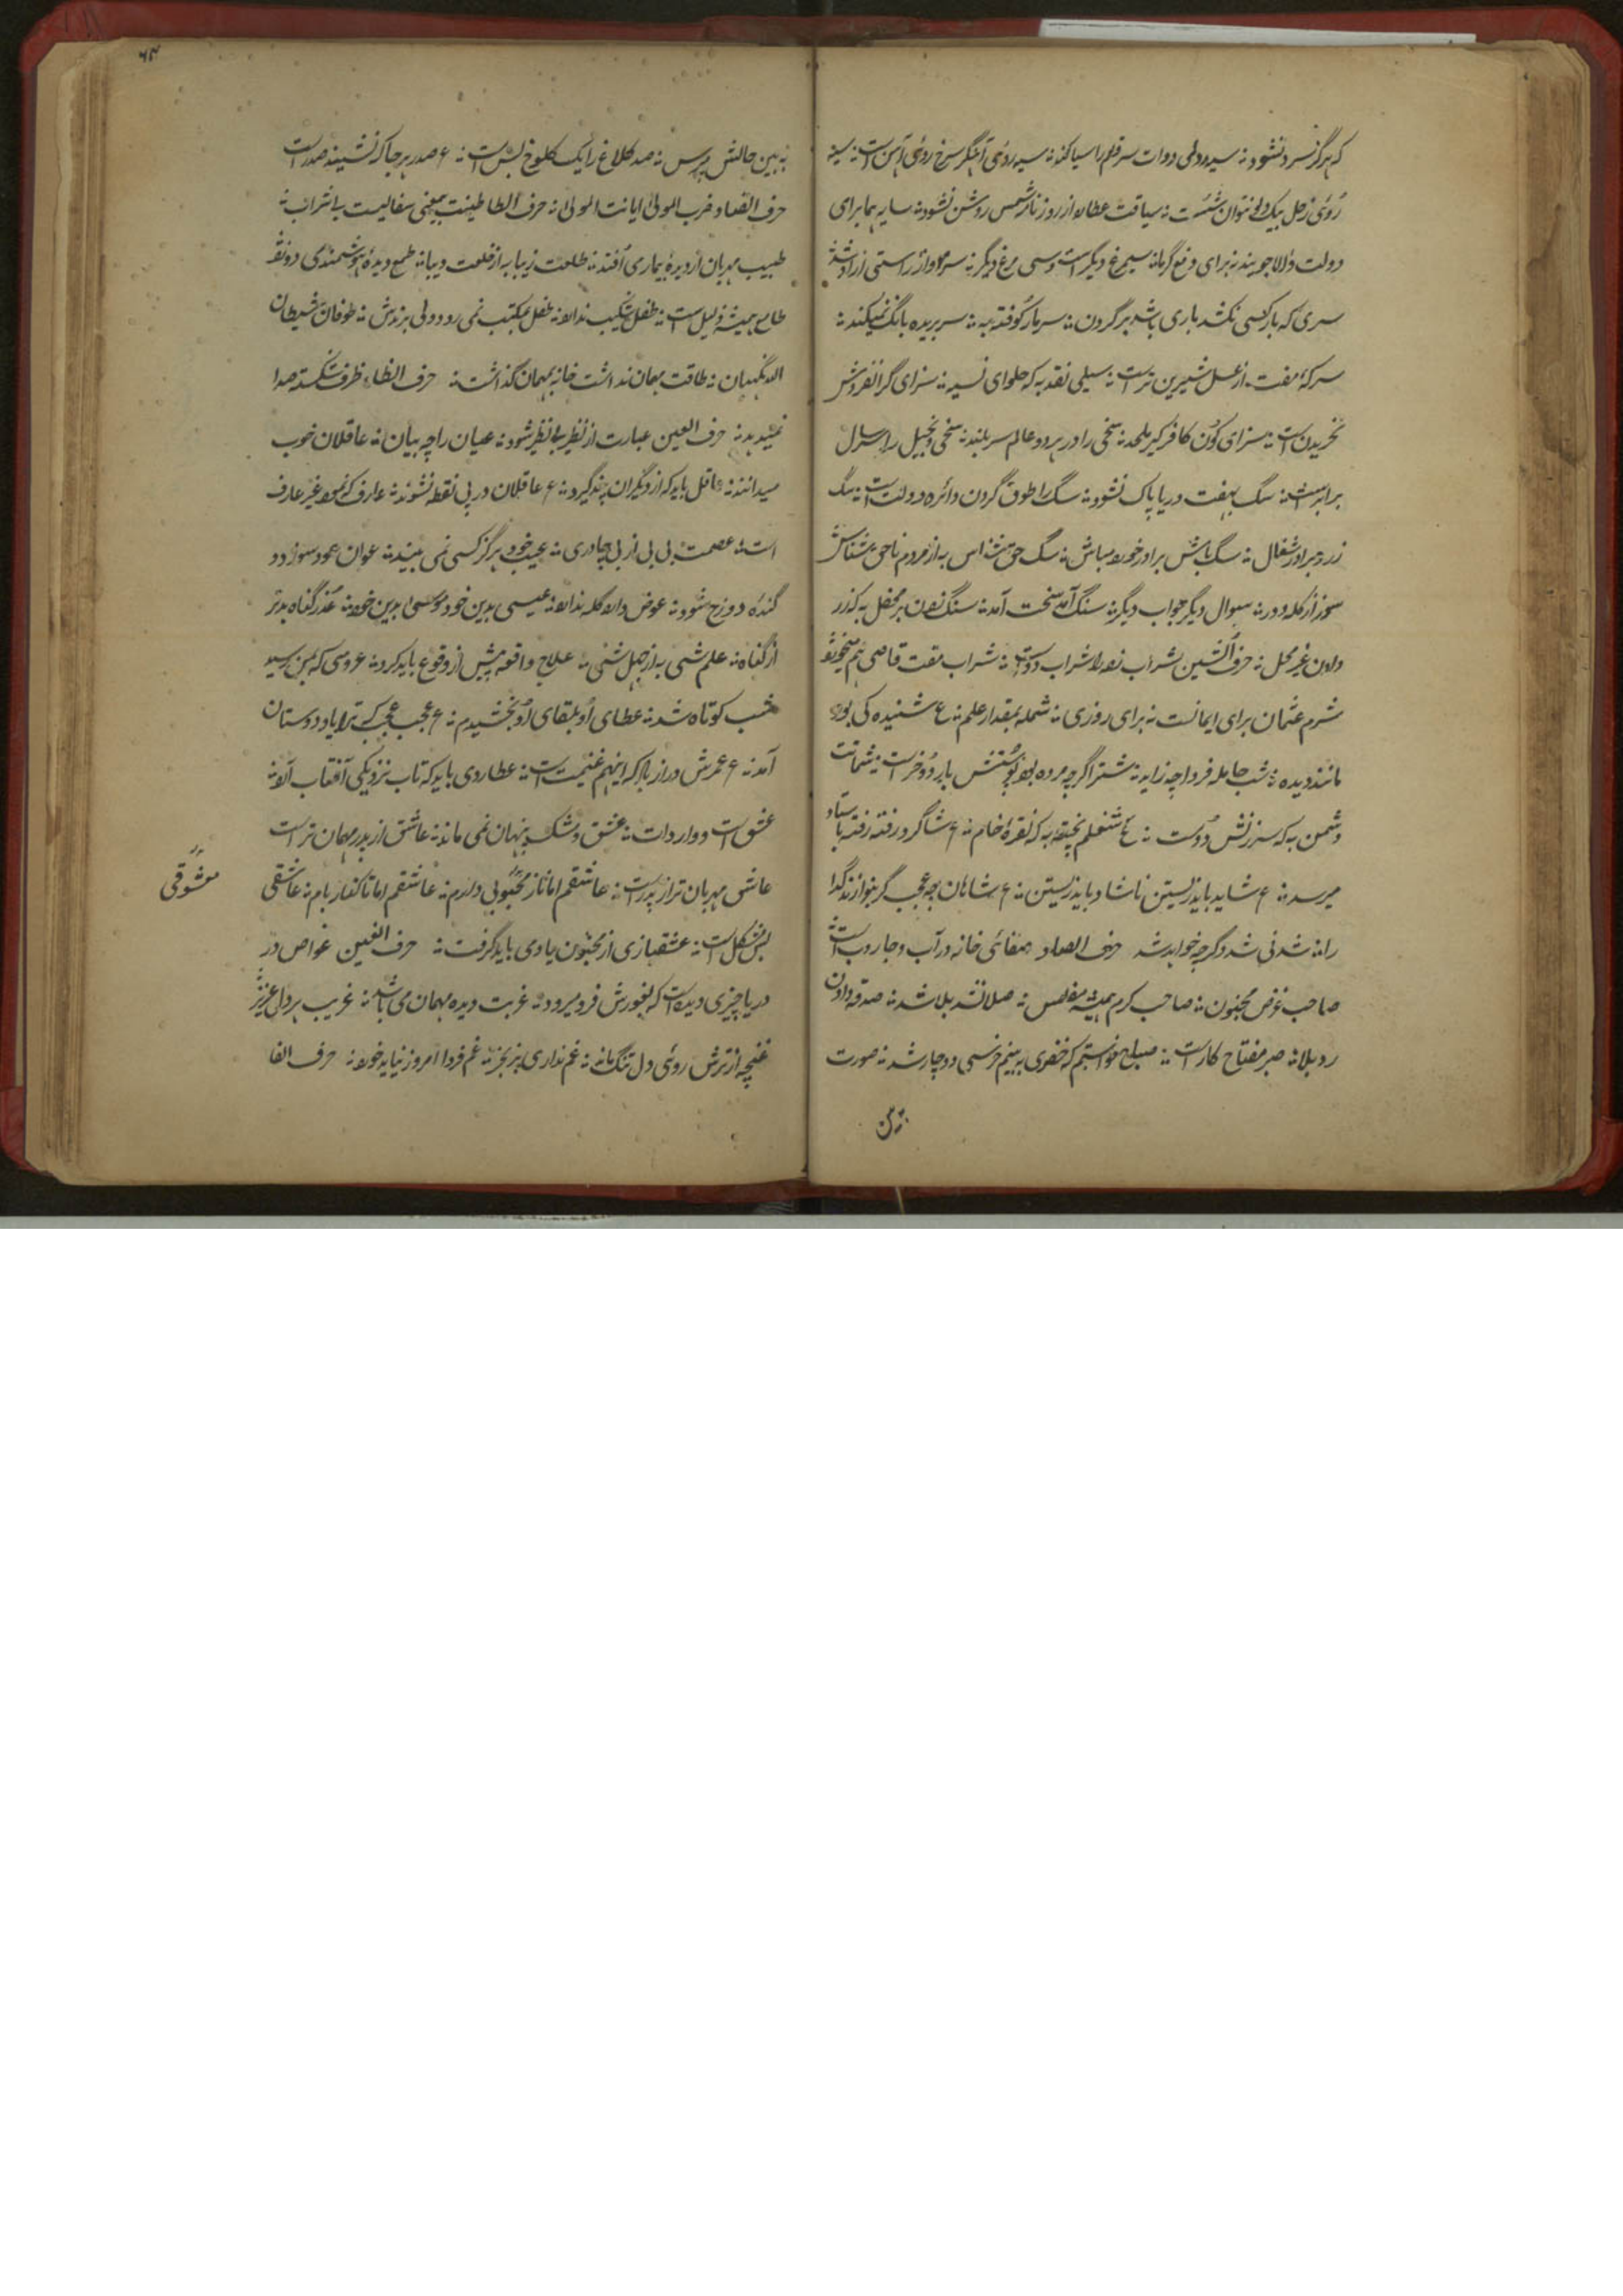 که هرگز سرد نشود ؞ سیه رولی دوات سر قلم را سیا کند ؞ سیه روئی آهنگر سرخ روئی آهن است ؞ سیه
روئی زحل بیک دلو نتوان شست ؞ سیاقت عطارد از روزنامه شمس روشن نشود ؞ سایه هما برای
دولت والا جویند نه برای دفع گرما ؞ سیمرغ دیگر است و سی مرغ دیگر ؞ سرو از راستی آزاد شد ؞
سری که بار کسی نکشد باری باشد بر گردن ؞ سر مار کوفته به ؞ سر بریده بانگ نمیکند ؞
سرکهٔ مفت از عسل شیرین تر است ؞ سیلی نقد به که حلوای نسیه ؞ سزای گرانفروش
نخریدن است ؞ سزای کون کافر کیر ملحد ؞ سخی را در هر دو عالم سر بلند ؞ سخی و بخیل را سر سال
برابر است ؞ سگ بهفت دریا پاک نشود ؞ سگ را طوق گردن دائره دولت است ؞ سگ
زرد برادر شغال ؞ سگ باش برادر خورد مباش ؞ سگ حق شناس به از مردم ناحق شناس
سوزن از گله دور ؞ سوال دیگر جواب دیگر ؞ سنگ آمد سخت آمد ؞ سنگ زدن بر محفل به که زر
دادن غیر محل ؞ حرف الشین شراب زده را شراب دواست ؞ شراب مفت قاضی هم میخورد
شرم عثمان برای ایمانست نه برای روزی ؞ شمله بمقدار علم ؞ ع شنیده کی بود
مانند دیده ؞ شب حامله فردا چه زاید ؞ شتر اگرچه مرده بود پوستش بار دو خر است ؞ شماتت
دشمن به که سرزنش دوست ؞ ع شلغم پخته به که نقرهٔ خام ؞ ع شاگرد رفته رفته باستاد
میرسد ؞ ع شاید باید زیستن ناشاد باید زیستن ؞ ع شاهان چه عجب گر بنوازند گدا
را ؞ شدنی شد دگر چه خواهد شد حرف الصاد صفائی خانه در آب و جاروب است ؞
صاحب غرض مجنون ؞ صاحب کرم همیشه مفلس ؞ صلا نشد بلا شد ؞ صدقه دادن
رد بلا ؞ صبر مفتاح کار است ؞ صباح خواستم که خضری به بینم خرسی دوچار شد ؞ صورت
به بین حالش بپرس ؞ صد کلاغ را یک کلوخ بس است ؞ ع صدر هر جا که نشیند صدر است
حرف الضاد ضرب المولی اهانت المولی ؞ حرف الطا طینت بمعنی سفالیست بے شراب ؞
طبیب مهربان از دیدهٔ بیماری آفتد ؞ طلعت زیبا به از خلعت دیبا ؞ طمع دیدهٔ هوشمندی دوزد
طامع همیشه ذلیل است ؞ طفل شکیب ندارد ؞ طفل بمکتب نمی رود ولی برندش ؞ طوفان شیطان
الله نگهبان ؞ طاقت مهمان نداشت خانه بمهمان گذاشت ؞ حرف الظاء ظرف شکسته صدا
نمیدهد ؞ حرف العین عبارت از نظیر بے نظیر شود ؞ عیان را چه بیان ؞ عاقلان خوب
میدانند ؞ عاقل باید که از دیگران پند گیرد ؞ ع عاقلان در پی نقطه نشوند ؞ عارف که نمود غیر عارف
است ؞ عصمت بی بی از بی چادری ؞ عیب خود هرگز کسی نمی بیند ؞ عوان عود سوز دو
گندهٔ دوزخ شود ؞ عوض دارد گله ندارد ؞ عیسی بدین خود موسی بدین خود ؞ عذر گناه بدتر
از گناه ؞ علم شئی به از جهل شئی ؞ علاج واقعه پیش از وقوع باید کرد ؞ عروسی که بمن رسید
شب کوتاه شد ؞ عطای او بلقای او بخشیدم ؞ ع عجب عجب که ترا یاد دوستان
آمد ؞ ع عمرش دراز باد که اینهم غنیمت است ؞ عطاردی باید که تاب نزدیکی آفتاب آرد ؞
عشق است و واردات ؞ عشق و مشک پنهان نمی ماند ؞ عاشق از پدر مهربان تر است
عاشق مهربان تر از پدر است ؞ عاشقم اما ناز محبوبی دارم ؞ عاشقم اما تا کنار بام ؞ عاشقی
معشوقی
بس مشکل است ؞ عشقبازی از مجنون یادی باید گرفت ؞ حرف الغین غواص در
دریا چیزی دیده است که بغورش فرو میرود ؞ غربت دیده مهمان می باشد ؞ غریب بر دلی عزیز ؞
غنچه از ترش روئی دل تنگ ماند ؞ غم نداری بز بخر ؞ غم فردا امروز نباید خورد ؞ حرف الفا